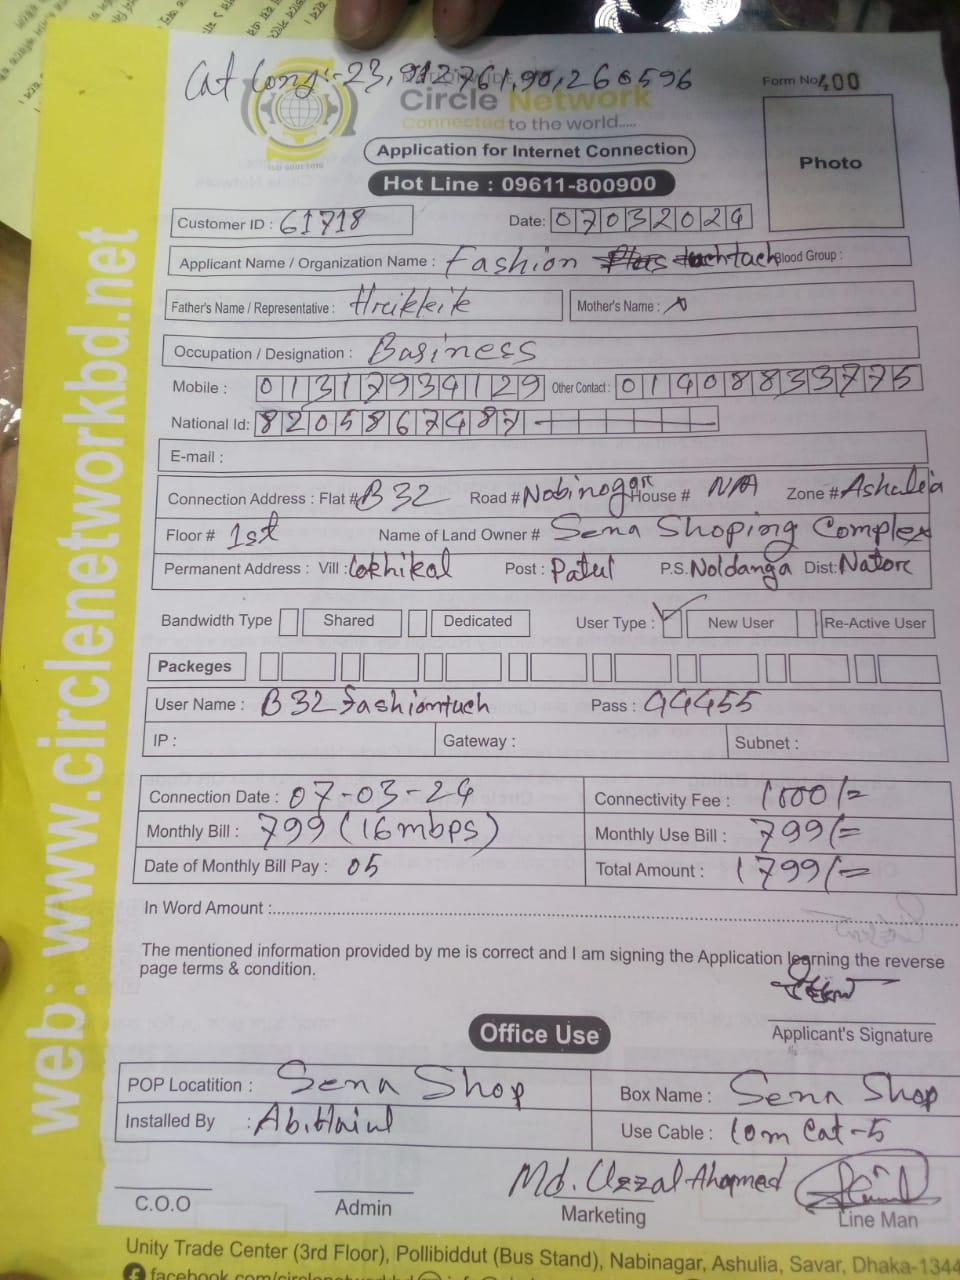 Cat Long:-23,912761,90,266596
Form No 400
Circle Network
Connected to the world.....
ISO 9001:2015
Application for Internet Connection
Photo
Hot Line : 09611-800900
Customer ID : 61718
Date: 07032024
Applicant Name / Organization Name : Fashion tuch Blood Group :
Father's Name / Representative : Hreikkeik Mother's Name : x
Occupation / Designation : Business
Mobile : 01317934129 Other Contact : 01908833775
National Id: 8205867487
E-mail :
Connection Address : Flat # B 32 Road # Nobinogor House # N/A Zone # Ashuleia
Floor # 1st Name of Land Owner # Sena Shoping Complex
Permanent Address : Vill : Lokhikol Post : Patul P.S. Noldanga Dist: Natore
Bandwidth Type Shared Dedicated User Type : New User Re-Active User
Packeges
User Name : B32 fashiontuch Pass : 44455
IP : Gateway : Subnet :
Connection Date : 07-03-24 Connectivity Fee : 1000/=
Monthly Bill : 799 (16mbps) Monthly Use Bill : 799/=
Date of Monthly Bill Pay : 05 Total Amount : 1799/=
In Word Amount :
The mentioned information provided by me is correct and I am signing the Application learning the reverse
page terms & condition.
Applicant's Signature
Office Use
POP Locatition : Sena Shop Box Name : Sena Shop
Installed By : Use Cable : 10m Cat-5
Md. Uzzal Ahamed
C.O.O Admin Marketing Line Man
Unity Trade Center (3rd Floor), Pollibiddut (Bus Stand), Nabinagar, Ashulia, Savar, Dhaka-1344
web: www.circlenetworkbd.net